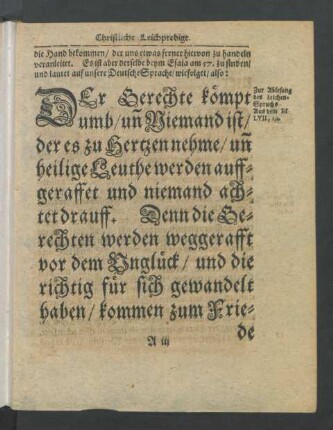 Christliche Leichpredigt.
die Hand bekommen / der uns etwas ferner hiervon zu handeln
veranleitet. Es ist aber derselbe beym Esaia am 57. zu finden /
und lautet auf unsere Deutsche Sprache / wie folget / also:
Zur Ablesung
des Leichen-
Spruchs
Aus dem
LVII,
DEr Gerechte kömpt
umb / uñ Niemand ist /
der es zu Hertzen nehme / uñ
heilige Leuthe werden auff-
geraffet und niemand ach-
tet drauff. Denn die Ge-
rechten werden weggerafft
vor dem Unglück / und die
richtig für sich gewandelt
haben / kommen zum Frie-
de
A iij